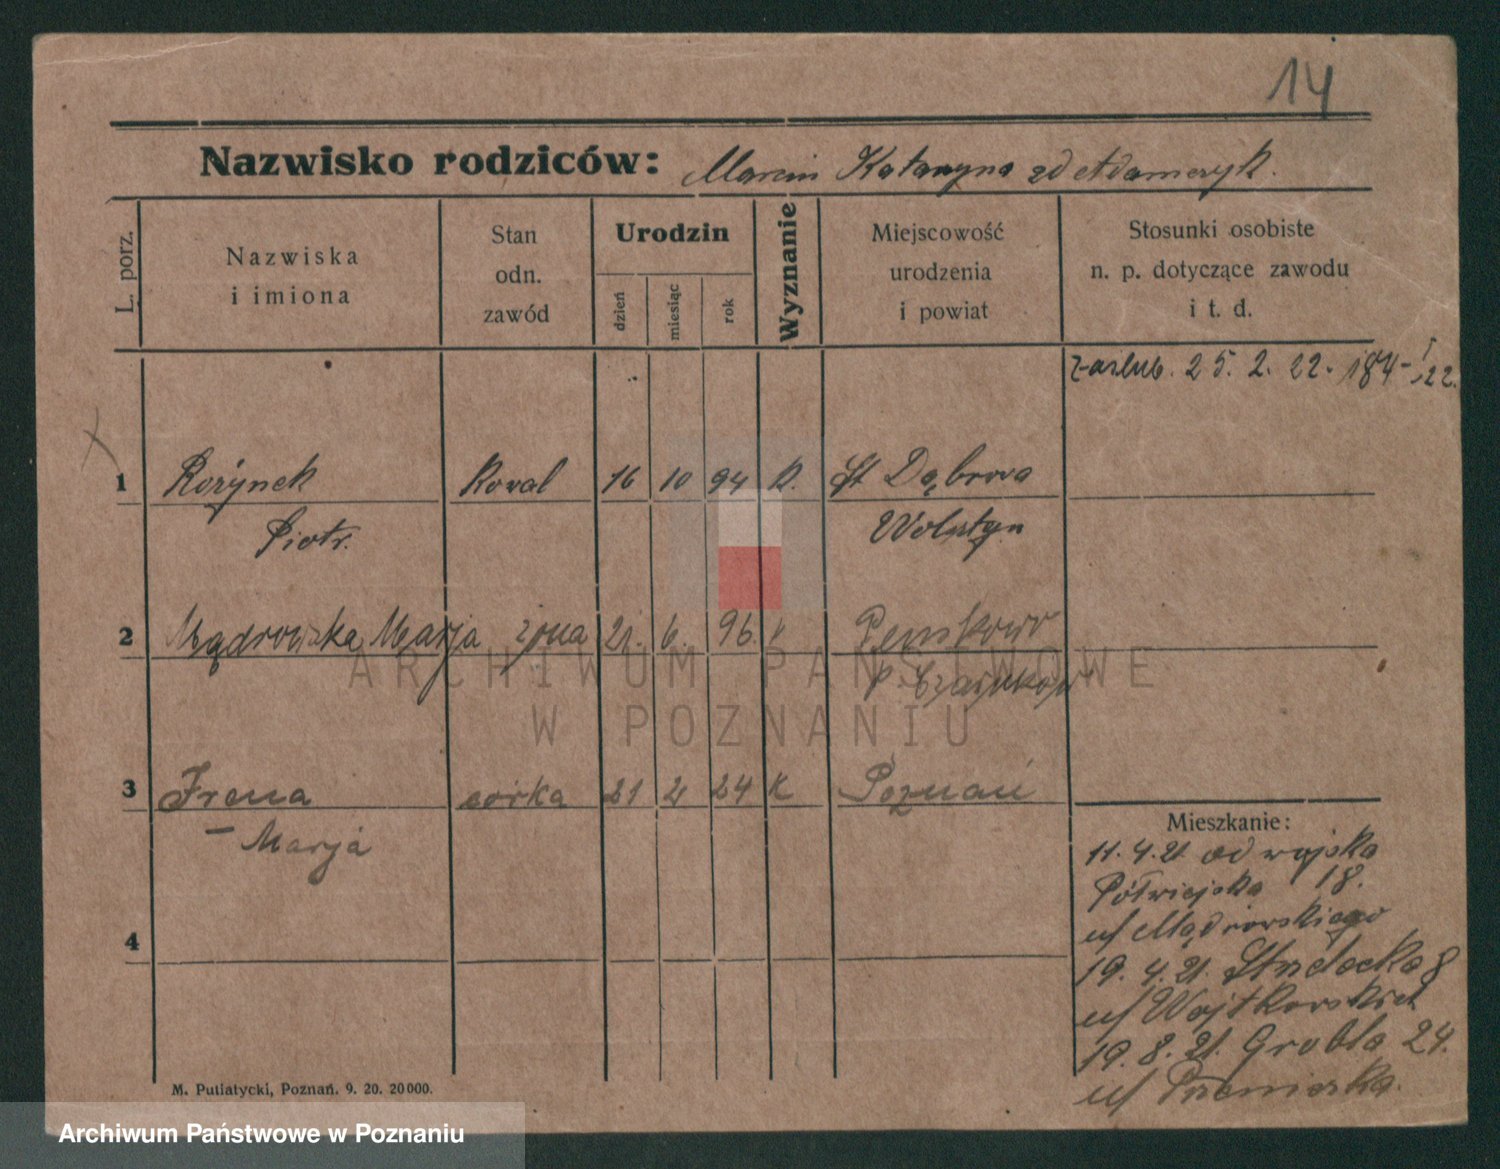 14
Nazwisko rodziców: Marcin Katarzyna zd Adamczyk.
L. porz.
Nazwiska i imiona
Stan odn. zawód
Urodzin
dzień
miesiąc
rok
Wyznanie
Miejscowość urodzenia i powiat
Stosunki osobiste n. p. dotyczące zawodu i t. d.
zaślub. 25. 2. 22. 184 - I/22.
1 Rożynek Kowal 16 10 94 K. St Dąbrowa
Piotr. Wolsztyn
2 Mądrowska Marja żona 21. 6. 96 k Pęckowo
p.
ARCHIWUM PAŃSTWOWE
W POZNANIU
3 Irena córka 21 2 24 K Poznań
– Marja
Mieszkanie:
11. 4. 21 od wojska
Półwiejska 18.
u/ Mądrowskiego
4
19. 4. 21. Strzelecka 8
u/
19. 8. 21. Grobla 24.
u/
M. Putiatycki, Poznań. 9. 20. 20000.
Archiwum Państwowe w Poznaniu